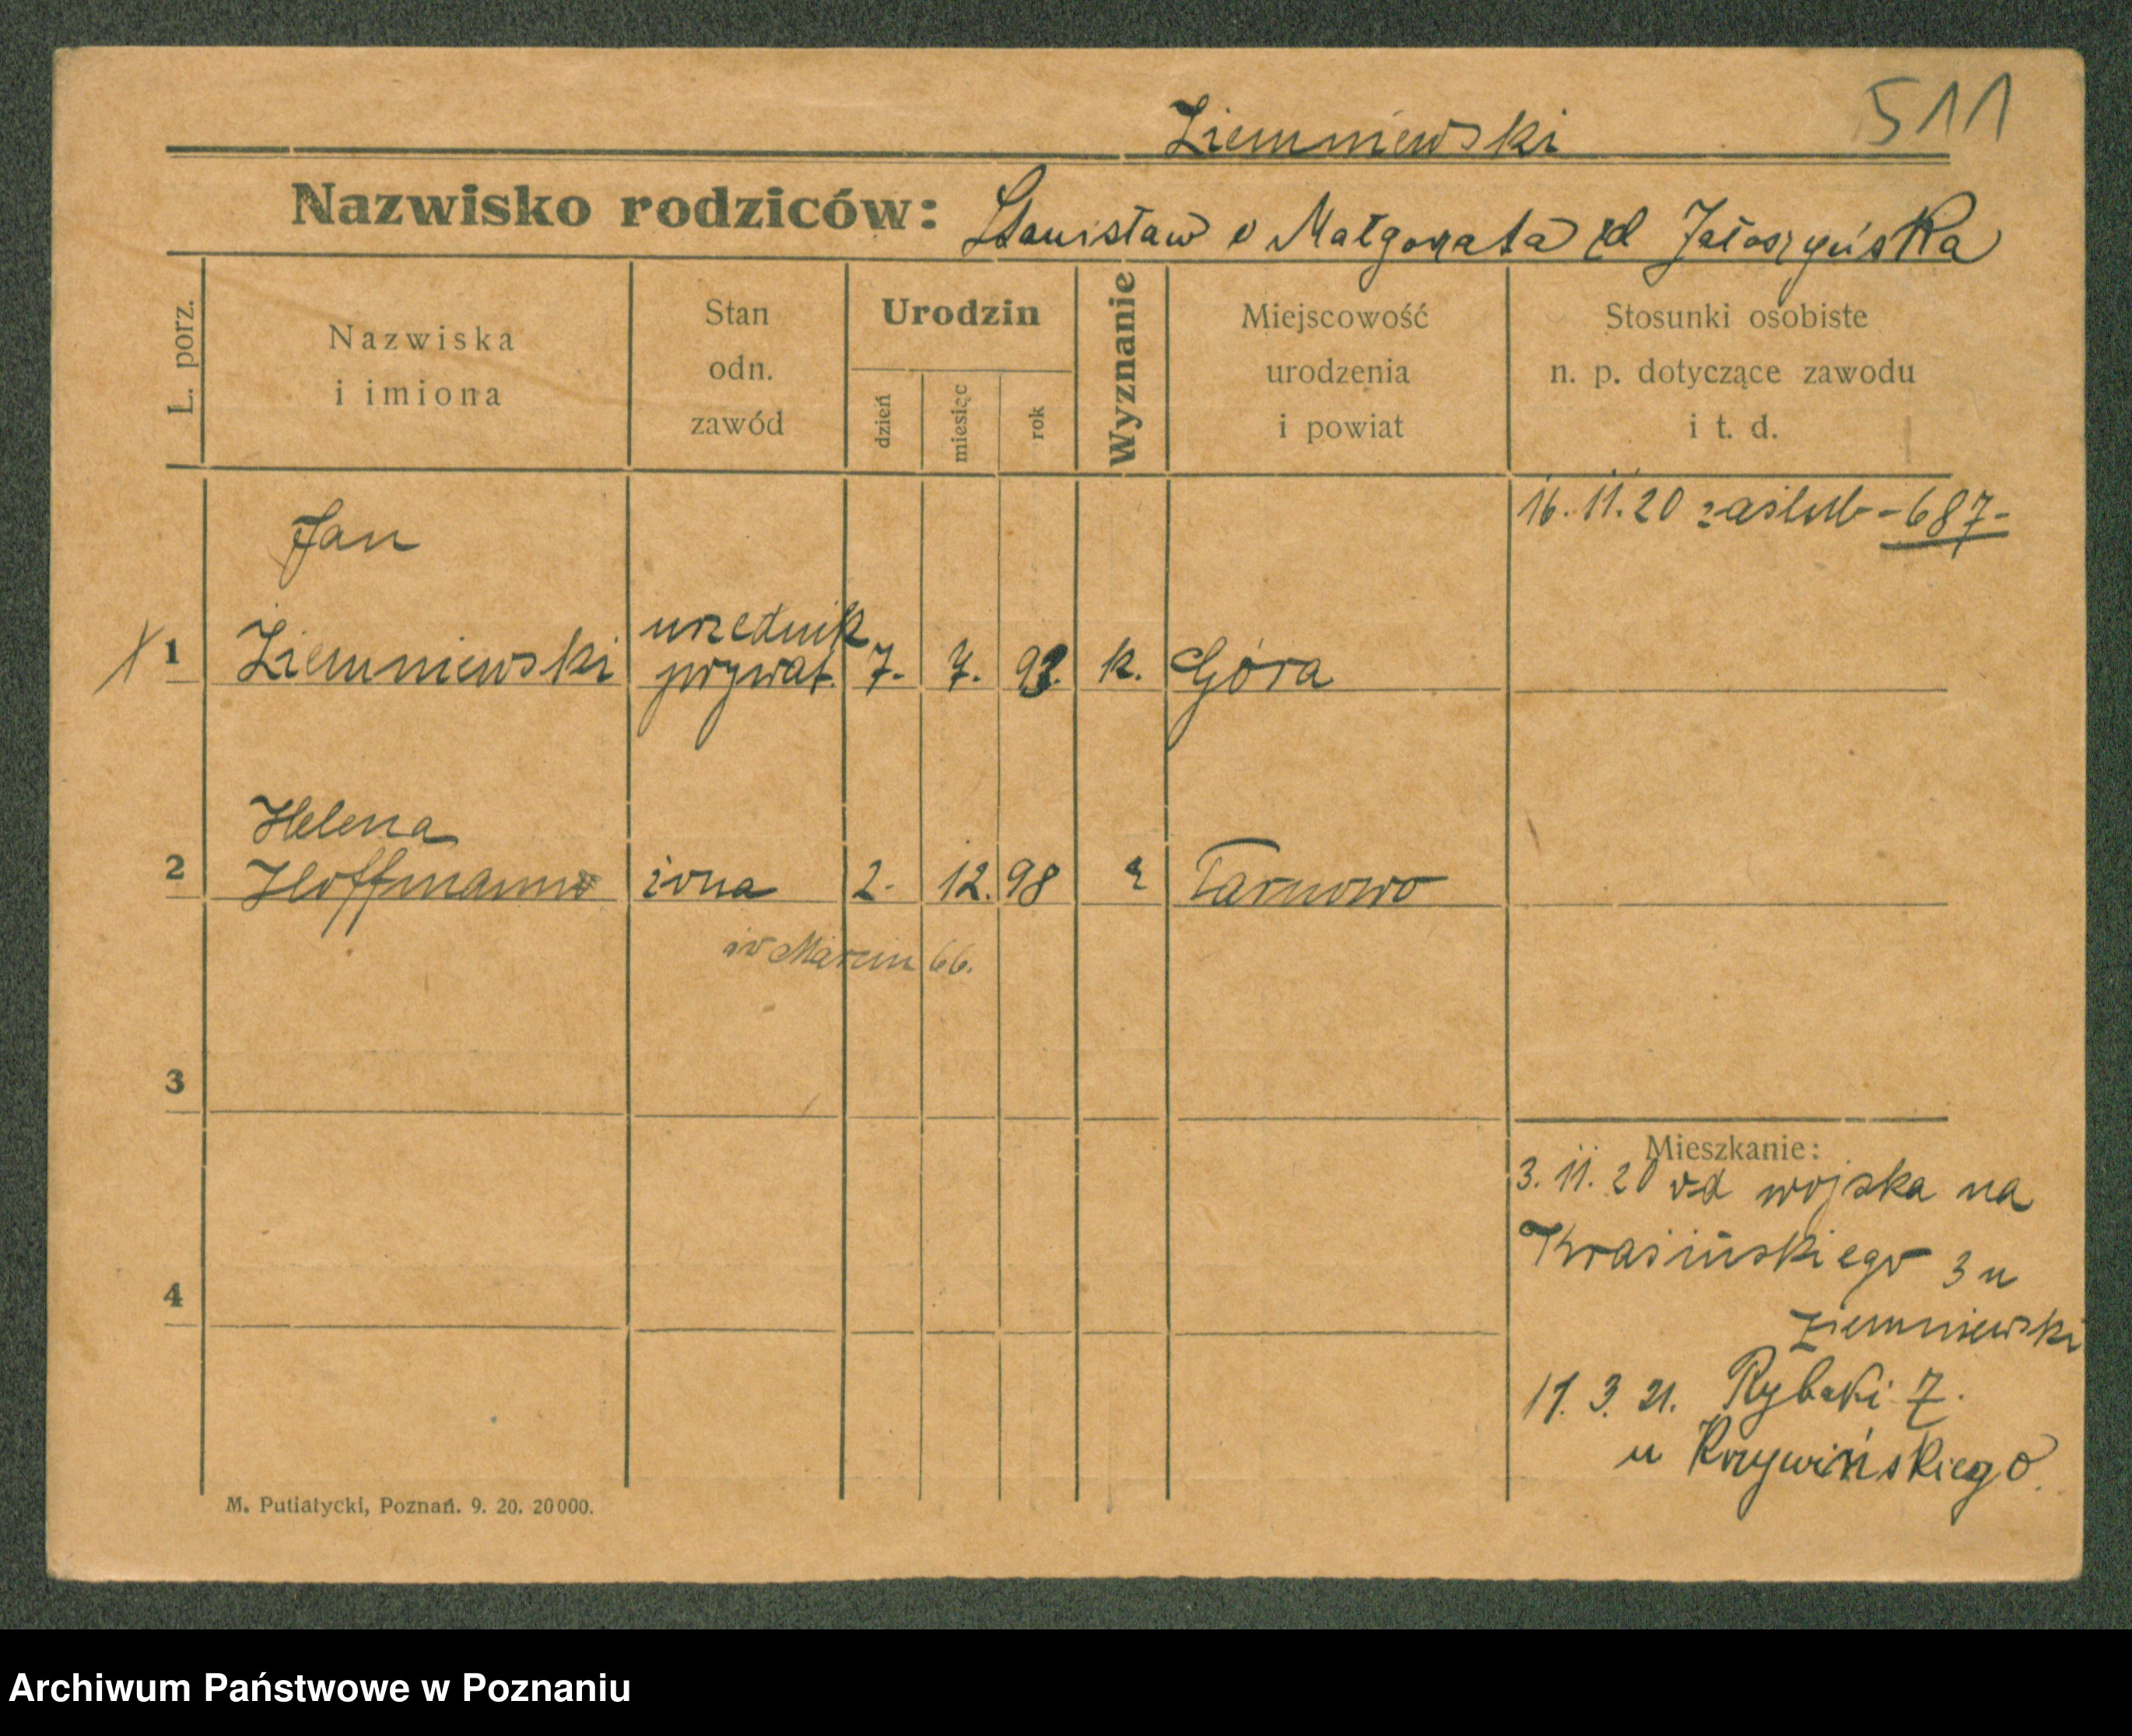 511
Ziemniewski
Nazwisko rodziców: Stanisław i Małgorzata zd Jałoszyńska
L. porz.
Nazwiska
i imiona
Stan
odn.
zawód
Urodzin
dzień
miesiąc
rok
Wyznanie
Miejscowość
urodzenia
i powiat
Stosunki osobiste
n. p. dotyczące zawodu
i t. d.
16.11.20 zaślub - 687-
Jan
urzednik
1 Ziemniewski prywat. 7. 7. 93. k. Góra
Helena
2 Hoffmann żona 2. 12. 98 Tarnowo
św Marcin 66.
3
Mieszkanie:
3.11.20 od wojska na
Krasińskiego 3 u
Ziemniewski
4
11.3.21. Rybaki 7.
u Krzywińskiego.
M. Putiatycki, Poznań. 9. 20. 20000.
Archiwum Państwowe w Poznaniu